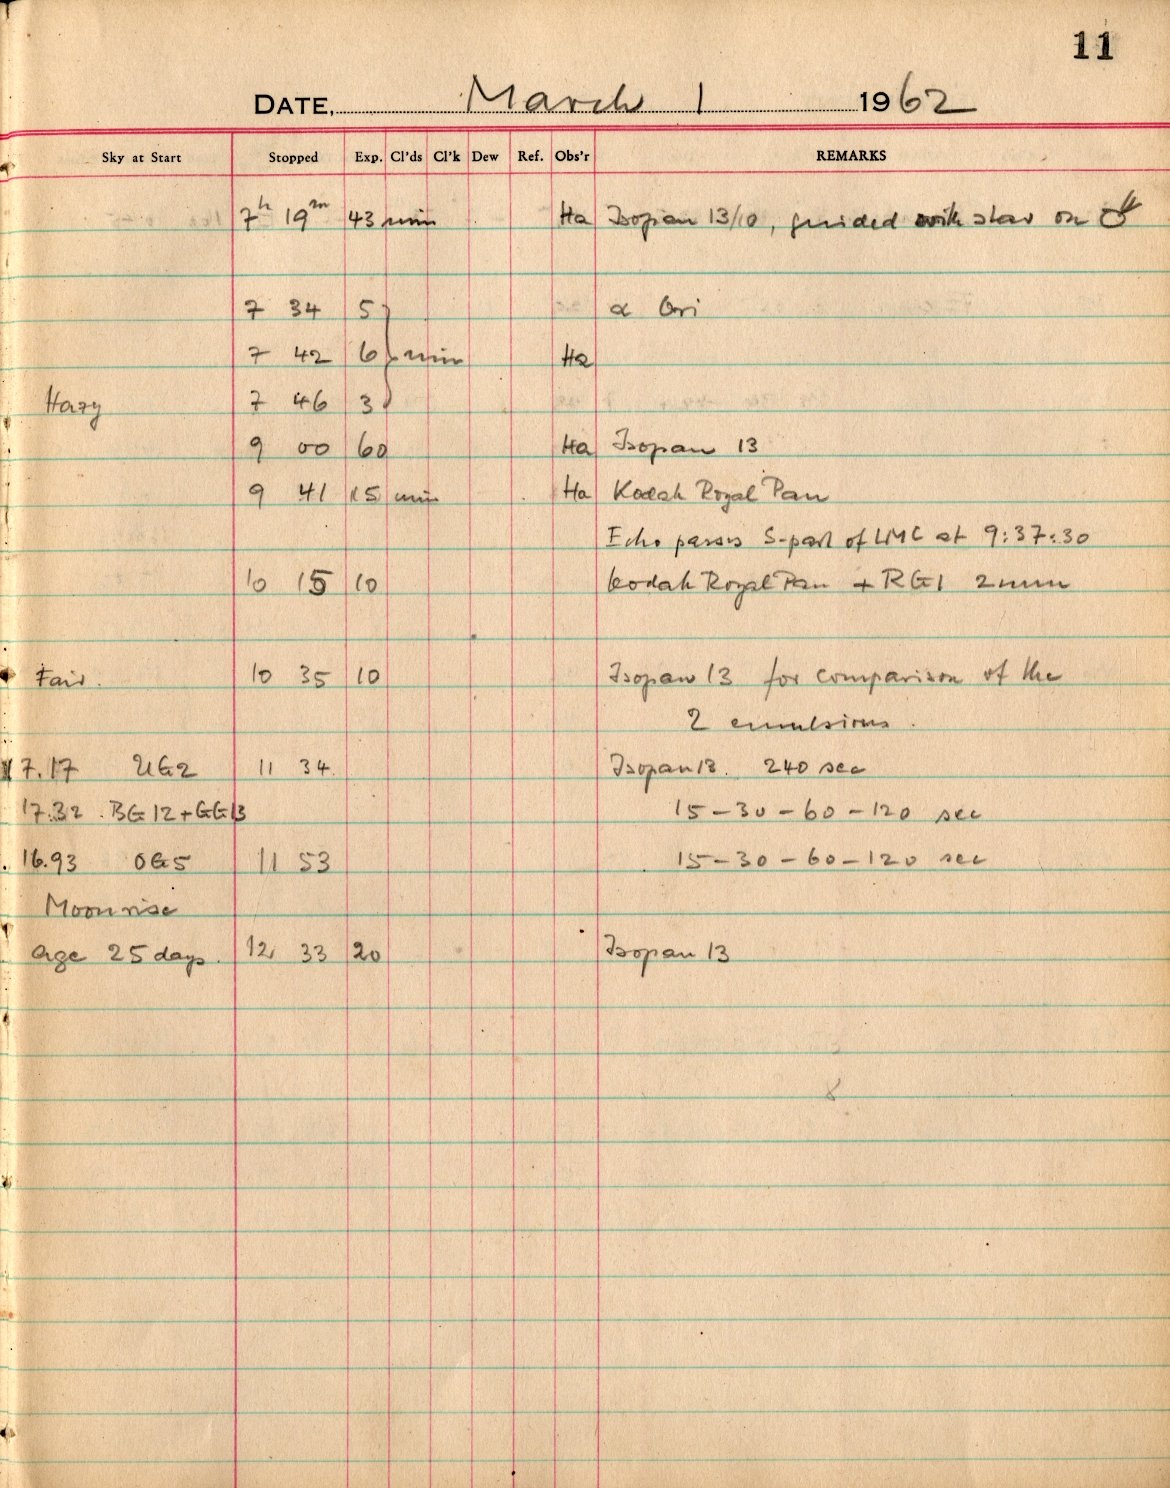 11
DATE, March 1 1962
Sky at Start Stopped Exp. Cl'ds Cl'k Dew Ref. Obs'r REMARKS
7h 19m 43 min Ha Isopan 13/10, guided with star on
7 34 5 α Ori
7 42 6 } min Ha
Hazy 7 46 3
9 00 60 Ha Isopan 13
9 41 15 min Ha Kodak Royal Pan
Echo passes S-part of LMC at 9:37:30
10 15 10 Kodak Royal Pan + RG1 2mm
Fair. 10 35 10 Isopan 13 for comparison of the
2 emulsions.
17.17 UG2 11 34 Isopan 13. 240 sec
17.32 BG12+GG13 15-30-60-120 sec
16.93 OG5 11 53 15-30-60-120 sec
Moonrise
age 25 days. 12 33 20 Isopan 13